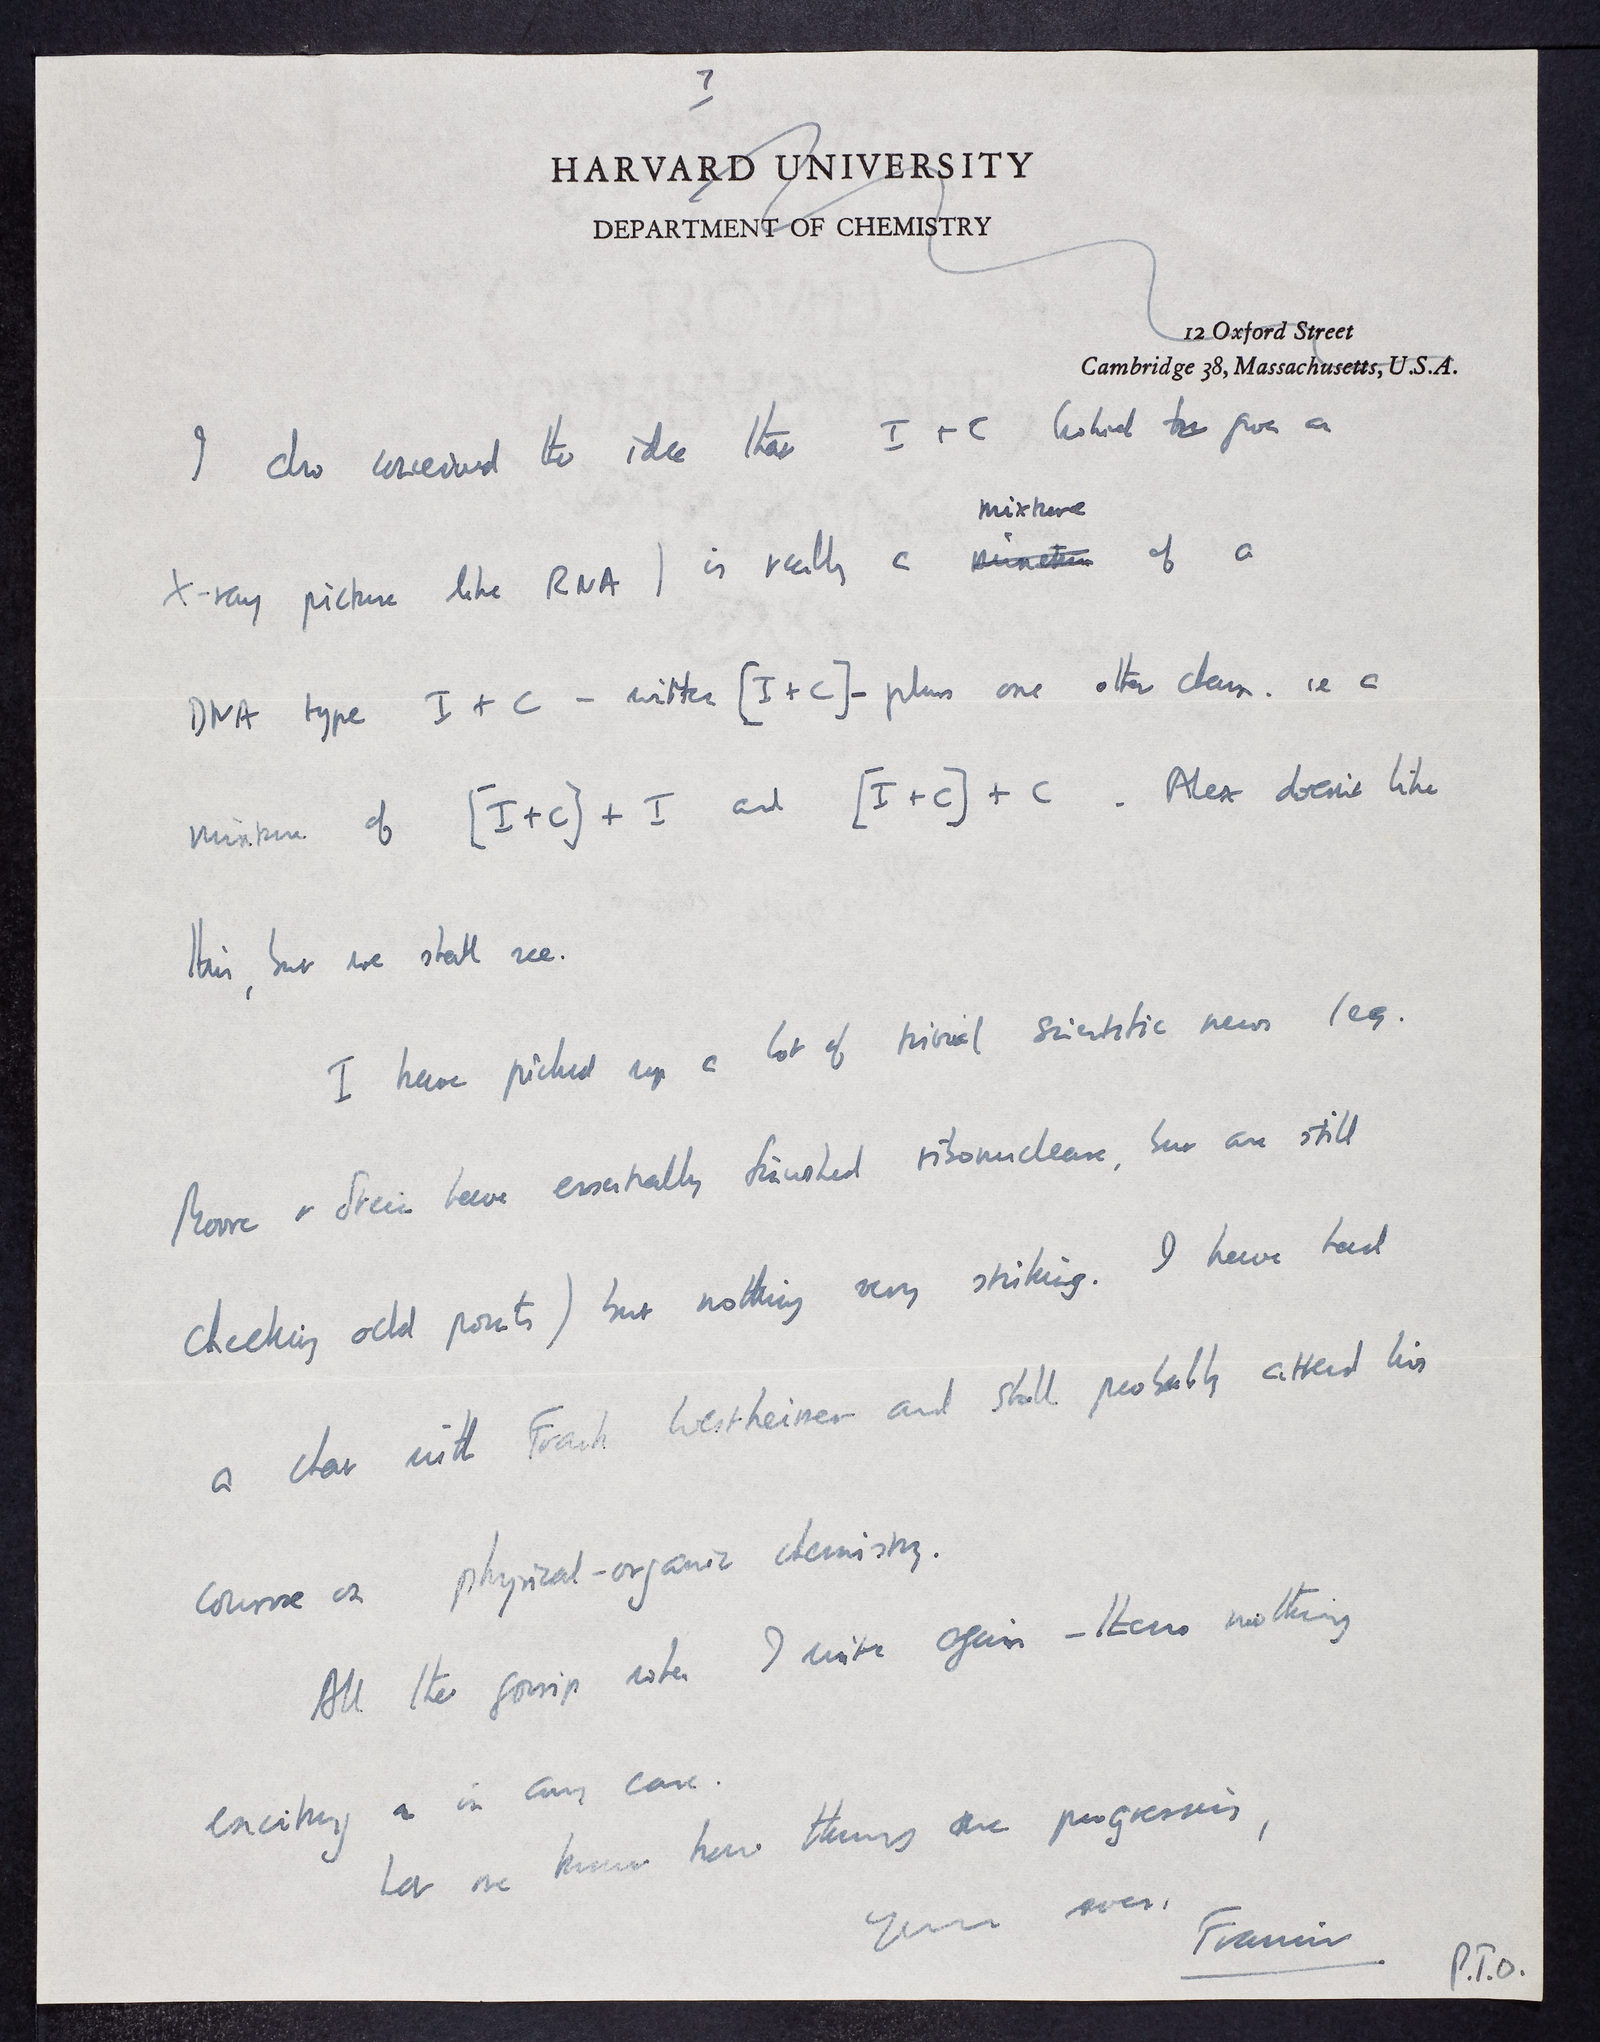 7
HARVARD UNIVERSITY
DEPARTMENT OF CHEMISTRY
12 Oxford Street
Cambridge 38, Massachusetts, U.S.A.
I also conceived the idea that I + C (which gives an
mixture
X-ray picture like RNA) is really a of a
DNA type I + C - written [I+C] - plus one other chain. ie a
mixture of [I+C] + I and [I+C] + C . Alex doesn't like
this, but we shall see.
I have picked up a lot of trivial scientific news (eg.
Moore + Stein have essentially finished ribonuclease, but are still
checking odd points) but nothing very striking. I have had
a chat with Frank Westheimer and shall probably attend his
course on physical-organic chemistry.
All the gossip when I write again - there's nothing
exciting in any case.
Let me know how things are progressing,
Yours ever,
Francis
P.T.O.